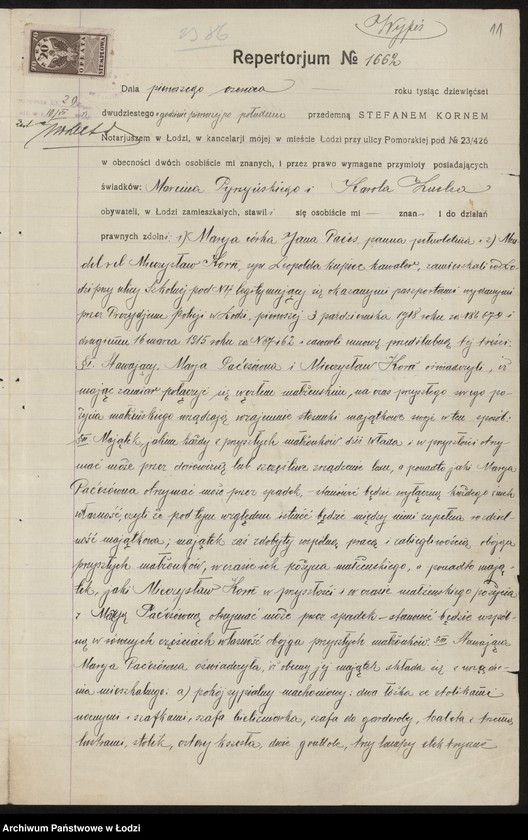 Wypis
11
2386
Repertorjum № 1662
OPŁATA STEMPLOWA
Dnia pierwszego czerwca roku tysiąc dziewięćset
dwudziestego o godzinie pierwszej po południu przedemną STEFANEM KORNEM
Notarjuszem w Łodzi, w kancelarji mójej w mieście Łodzi przy ulicy Pomorskiej pod № 23/426
w obecności dwóch osobiście mi znanych, i przez prawo wymagane przymioty posiadających
świadków: Marcina Pyzyńskiego i Karola
obywateli, w Łodzi zamieszkałych, stawili się osobiście mi znan i do działań
prawnych zdolni: 1) Marya córka Jana Paces, panna pełnoletnia i 2) Men-
del vel Mieczysław Korn, syn Leopolda kupiec kawaler, zamieszkali w Ło-
dzi przy ulicy Szkolnej pod №4 legitymujący się okazanymi paszportami wydanymi
przez Prezydjum Policji w Łodzi, pierwszej 3 października 1918 roku za
drugiemu 16 marca 1915 roku za i zawarli umowę przedślubną tej treści:
§I. Stawający Marja Pacesówna i Mieczysław Korn oświadczyli, iż
mając zamiar połączyć się węzłem małżeńskim, na czas przyszłego swego po-
życia małżeńskiego urządzają wzajemnie stosunki majątkowe swoje w ten sposób:
§II Majątek, jakim każdy z przyszłych małżonków dziś włada i w przyszłości otrzy-
mać może przez darowiznę lub szczęśliwe zrządzenie losu, a ponadto jaki Marja
Pacesówna otrzymać może przez spadek, stanowić będzie wyłączną każdego z nich
własność, czyli że pod tym względem istnieć będzie między nimi zupełna rozdziel-
ność majątkowa, majątek zaś zdobyty wspólną pracą i zabiegliwością obojga
przyszłych małżonków, w czasie ich pożycia małżeńskiego, a ponadto mają-
tek, jaki Mieczysław Korn w przyszłości i w czasie małżeńskiego pożycia
z Marją Pacesówną otrzymać może przez spadek – stanowić będzie wspól-
ną w równych częściach własność obojga przyszłych małżonków. §III Stawająca
Marja Pacesówna oświadczyła, iż obecny jej majątek składa się z urządze-
nia mieszkalnego: a) pokój sypialny machoniowy: dwa łóżka ze stolikami
nocnymi i szafkami, szafa bieliźniarka, szafa do garderoby, toaleta z trzema
lustrami, stolik, cztery krzesła, dwie gontole, trzy lampy elektryczne
Archiwum Państwowe w Łodzi